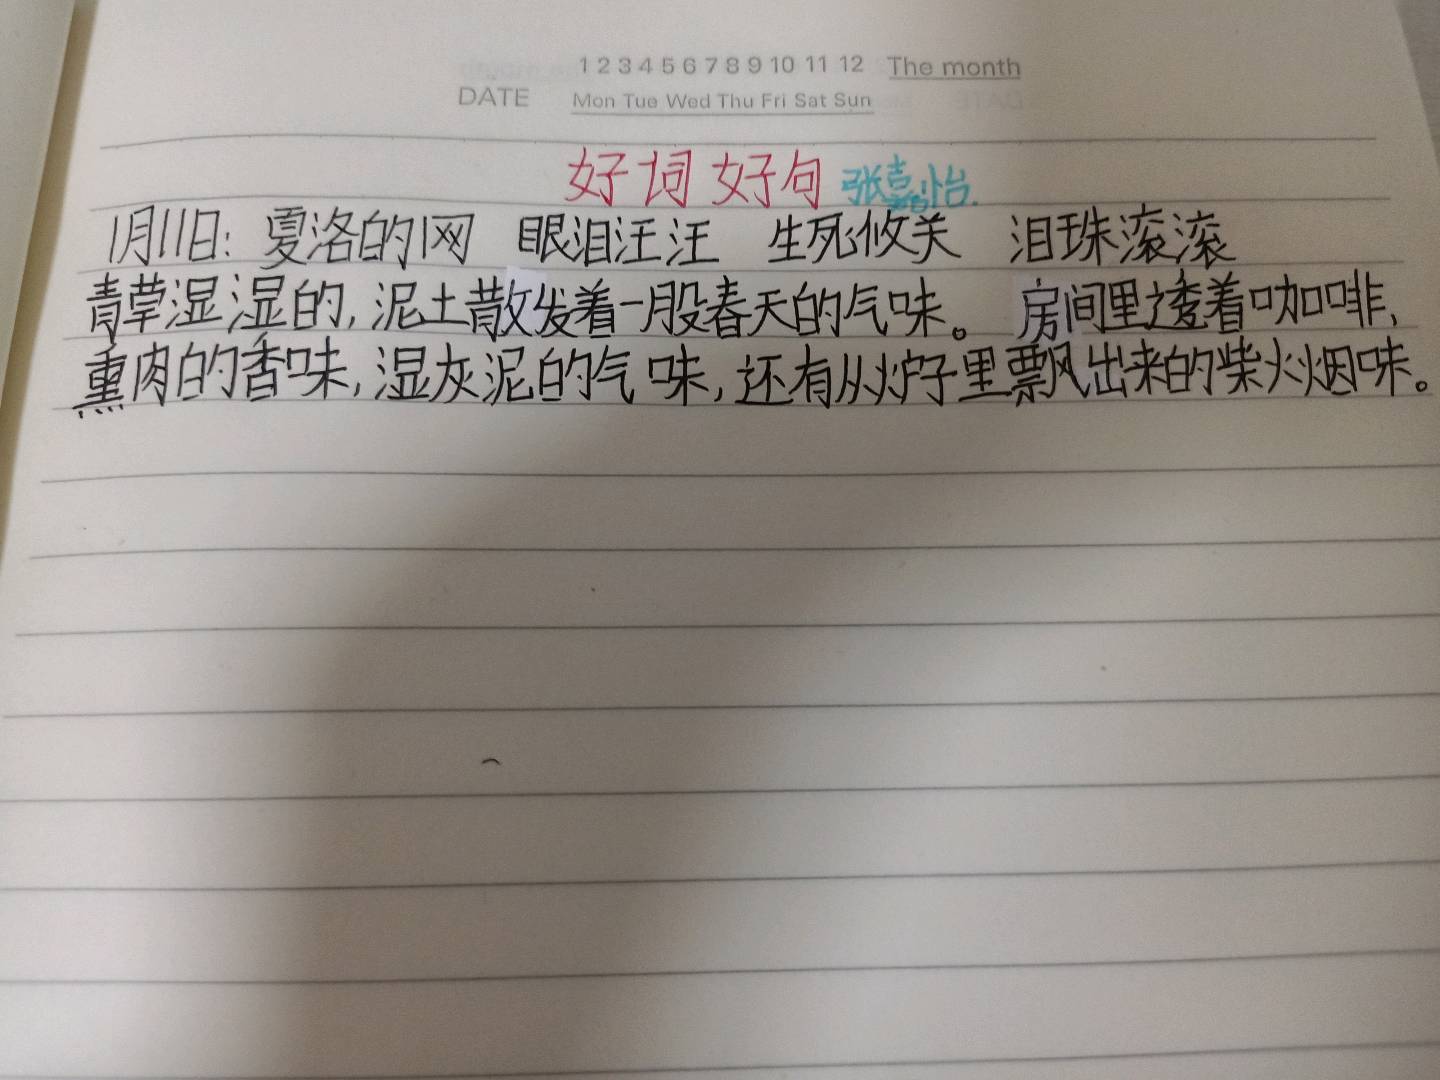 1 2 3 4 5 6 7 8 9 10 11 12 The month
DATE Mon Tue Wed Thu Fri Sat Sun
好词好句 张嘉怡.
1月11日: 夏洛的网 眼泪汪汪 生死攸关 泪珠滚滚
青草湿湿的,泥土散发着一股春天的气味。 房间里透着咖啡,
熏肉的香味,湿灰泥的气味,还有从炉子里飘出来的柴火烟味。